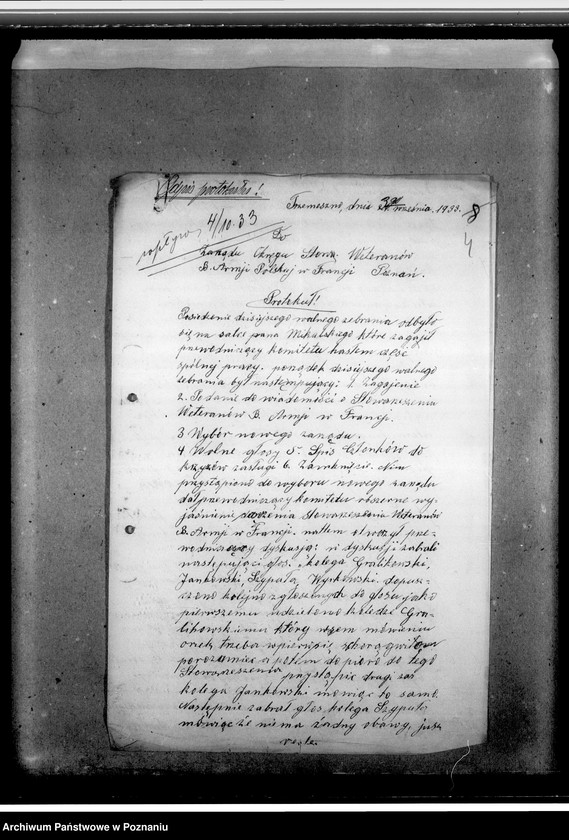 Odpis protokołu!
Trzemeszno, dnia września. 1933.
8
4
wpływ 4/10. 33
Do
Zarządu Okręgu Stow. Weteranów
B. Armji Polskiej w Francji Poznań.
Protokuł!
Posiedzenie dzisiejszego walnego zebrania odbyło
się na salce pana Mikulskiego które zagaił
przewodniczący komitetu hasłem cześć
spólnej pracy. porządek dzisiejszego walnego
zebrania był następujący: 1. Zagajenie
2. Podanie do wiadomości o Stowarzeszenia
Weteranów B. Armji w Francji.
3 Wybór nowego zarządu.
4 Wolne głosy 5. Spis Członków do
krzyżów zasługi 6. Zamknięcie.
przystąpiono do wyboru nowego zarządu
dał przewodniczący komitetu obszerne wy-
jaśnienie Stowarzeszenia Weteranów
B. Armji w Francji. otworzył prze-
wodniczący dyskusją: w dyskusji zabrali
następujący głos. kolega Gralikowski,
Jankowski, Szypała, Wyrkowski. dopusz-
czono kolejno zgłoszonych do głosu jako
pierwszemu udzielono koledze Gra-
likowskiemu który swem mówieniu
trzeba wpierw się
porozumieć a potem dopiero do tego
Stowarzeszenia przystąpić drugi zaś
kolega Jankowski mówiąc to samo.
Następnie zabrał głos kolega Szypała
mówiąc że niema żadny obawy,